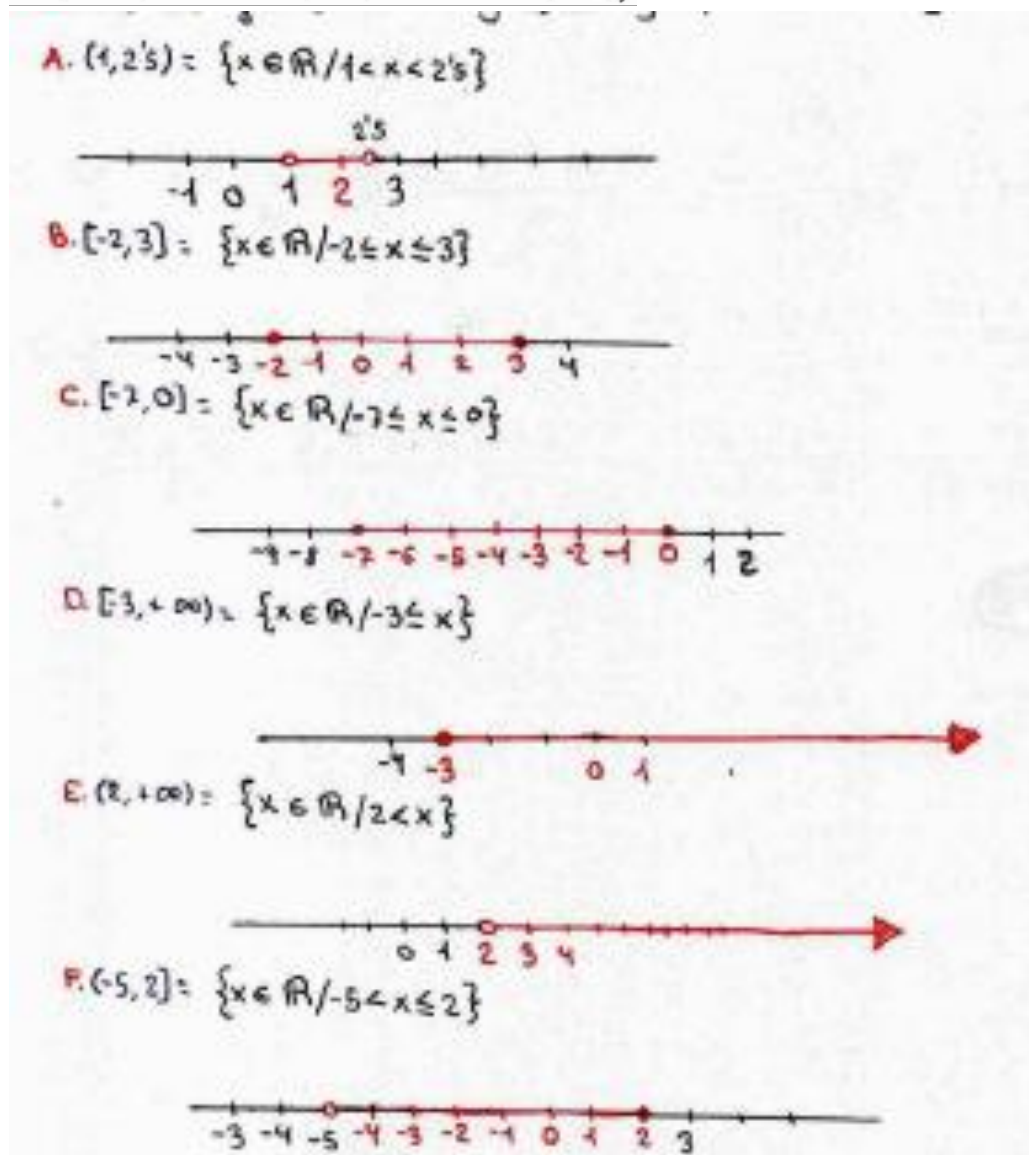 A. (1, 2'5) = {x ∈ ℝ / 1 < x < 2'5}
2'5
-1 0 1 2 3
B. [-2, 3] = {x ∈ ℝ / -2 ≤ x ≤ 3}
-4 -3 -2 -1 0 1 2 3 4
C. [-7, 0] = {x ∈ ℝ / -7 ≤ x ≤ 0}
-9 -8 -7 -6 -5 -4 -3 -2 -1 0 1 2
D. [-3, + ∞) = {x ∈ ℝ / -3 ≤ x}
-4 -3 0 1
E. (2, +∞) = {x ∈ ℝ / 2 < x}
0 1 2 3 4
F. (-5, 2] = {x ∈ ℝ / -5 < x ≤ 2}
-3 -4 -5 -4 -3 -2 -1 0 1 2 3